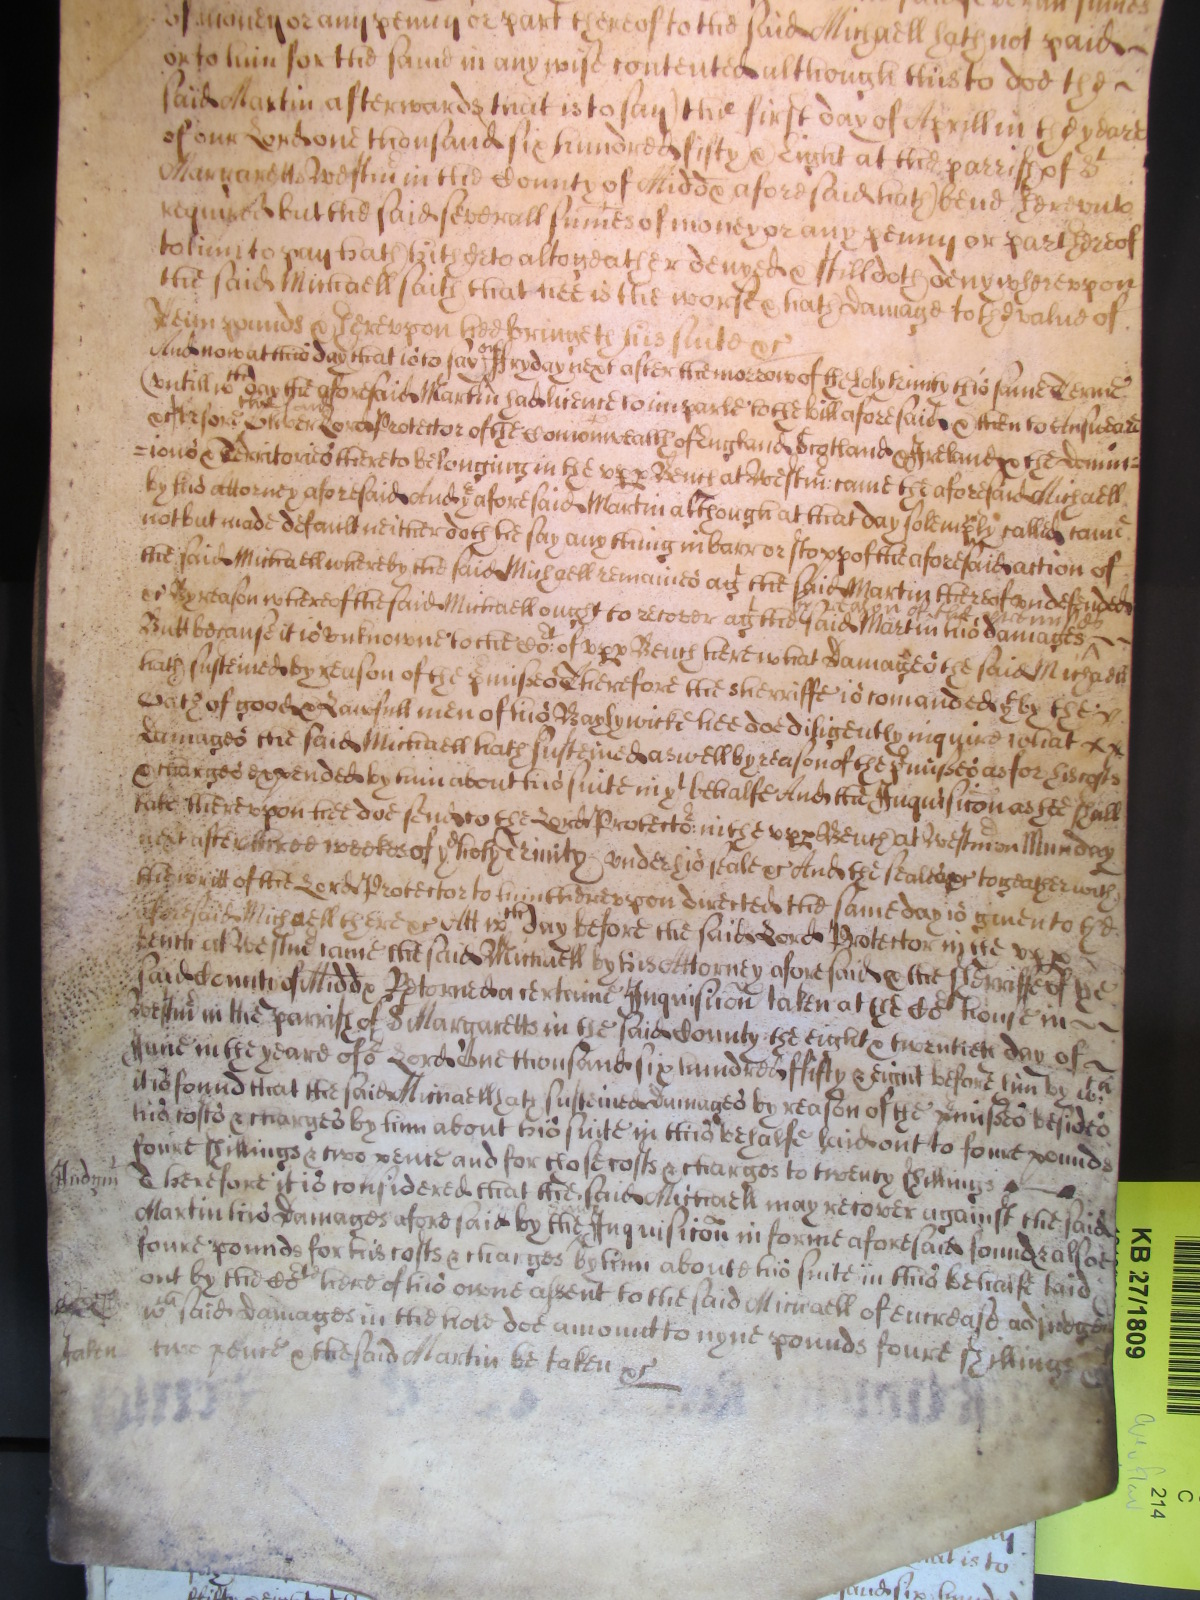 of money or any penny or part thereof to the said Michaell hath not paid
or to him for the same in any wise contented although thus to doe the
said Martin afterwards that is to say the first day of Aprill in the yeare
of our Lord one thousand six hundred fifty & Eight at the parrish of St
Margaretts Westmr in the County of Midds aforesaid hath bene thereunto
required but the said severall sumes of money or any penny or part thereof
to him to pay hath hitherto altogeather denyed & still doth deny whereupon
the said Michaell saith that hee is the worse & hath damage to the value of
Tenn pounds & thereupon hee bringeth his suite &c
And now at this day that is to say on ffryday next after the morrow of the holy trinity this same Terme
(untill wch day the aforesaid Martin had licence to imparle to the bill aforesaid & then to answeare
&c) before the Lord Protector of the Comonwealth of England Scotland & Ireland & the domin=
=ions & Territories thereto belonging in the upp Bench at Westmr came the aforesaid Michaell
by his attorney aforesaid And ye aforesaid Martin although at that day solemply called came
not but made default neither doth he say any thing in barr or stopp of the aforesaid action of
the said Michaell whereby the said Michaell remaines agt the said Martin thereof undefended
&c By reason whereof the said Michaell ought to recover agt the said Martin his damages by reason of the premisses
Butt because it is unknowne to the Cort of upp Bench here what damages the said Michaell
hath susteined by reason of the pmisses Therefore the sherriffe is comanded yt by the
Oath of good & Lawfull men of his Baylywicke hee doe diligently inquire what
damages the said Michaell hath susteined aswell by reason of the pmisses as for his costs
& charges expended by him about his suite in yt behalfe And the Inquisicon as hee shall
take thereupon hee doe send to the Lord Protector in the upp Bench at Westmr on Munday
next after three weekes of ye holy Trinity under his seale &c And the seales &c togeather with
the writt of the Lord Protector to him thereupon directed the same day is given to the
aforesaid Michaell there &c Att wch day before the said Lord Protector in the upp
Bench at Westmr came the said Michaell by his Attorney aforesaid & the Sherriffe of the
said County of Midds Retorned a certaine Inquisicon taken at the house in
Westmr in the parrish of St Margaretts in the said County the eight & twentieth day of
June in the yeare of or Lord One thousand six hundred ffifty & Eight before him by wch
it is found that the said Michaell hath susteined damages by reason of the pmisses besides
his costs & charges by him about his suite in this behalfe laid out to foure pounds
foure shillings & two pence and for those costs & charges to twenty shillings
Therefore it is considered that the said Michaell may recover against the said
Martin his Damages aforesaid by the Inquisicon in forme aforesaid found & alsoe
foure pounds for his costs & charges by him about his suite in this behalfe laid
out by the Cort here of his owne assent to the said Michaell of encrease adjudged
wch said damages in the hole doe amount to nyne pounds foure shillings
Taken
two pence & the said Martin be taken &c
KB 27/1809
214
C
that is to